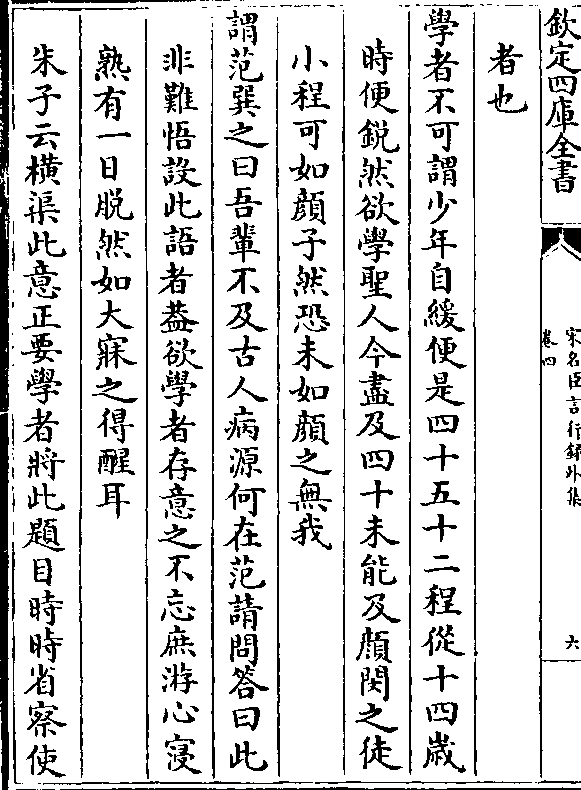 欽定四庫全書
宋名臣言行録外集
卷四
六
者也
學者不可謂少年自緩便是四十五十二程從十四歲
時便鋭然欲學聖人今盡及四十未能及顔閔之徒
小程可如顔子然恐未如顔之無我
謂范巽之曰吾輩不及古人病源何在范請問答曰此
非難悟設此語者葢欲學者存意之不忘庶游心寖
熟有一日脱然如大寐之得醒耳
朱子云横渠此意正要學者將此題目時時省察使